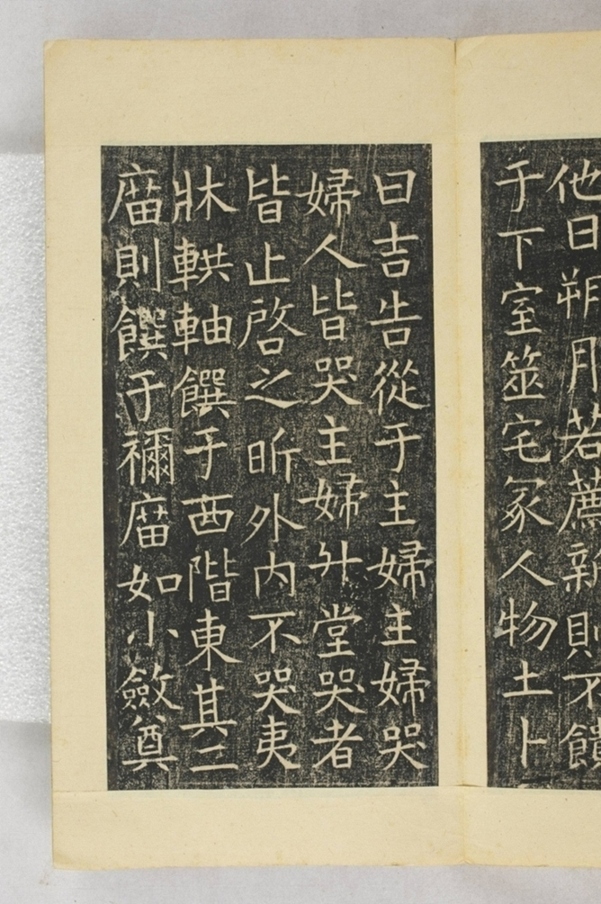 他日朔月若薦新則不饋
于下室筮宅冢人物土卜
日吉告從于主婦主婦哭
婦人皆哭主婦升堂哭者
皆止啓之昕外內不哭夷
牀輁軸饌于西階東其二
庿則饌于禰庿如小斂奠